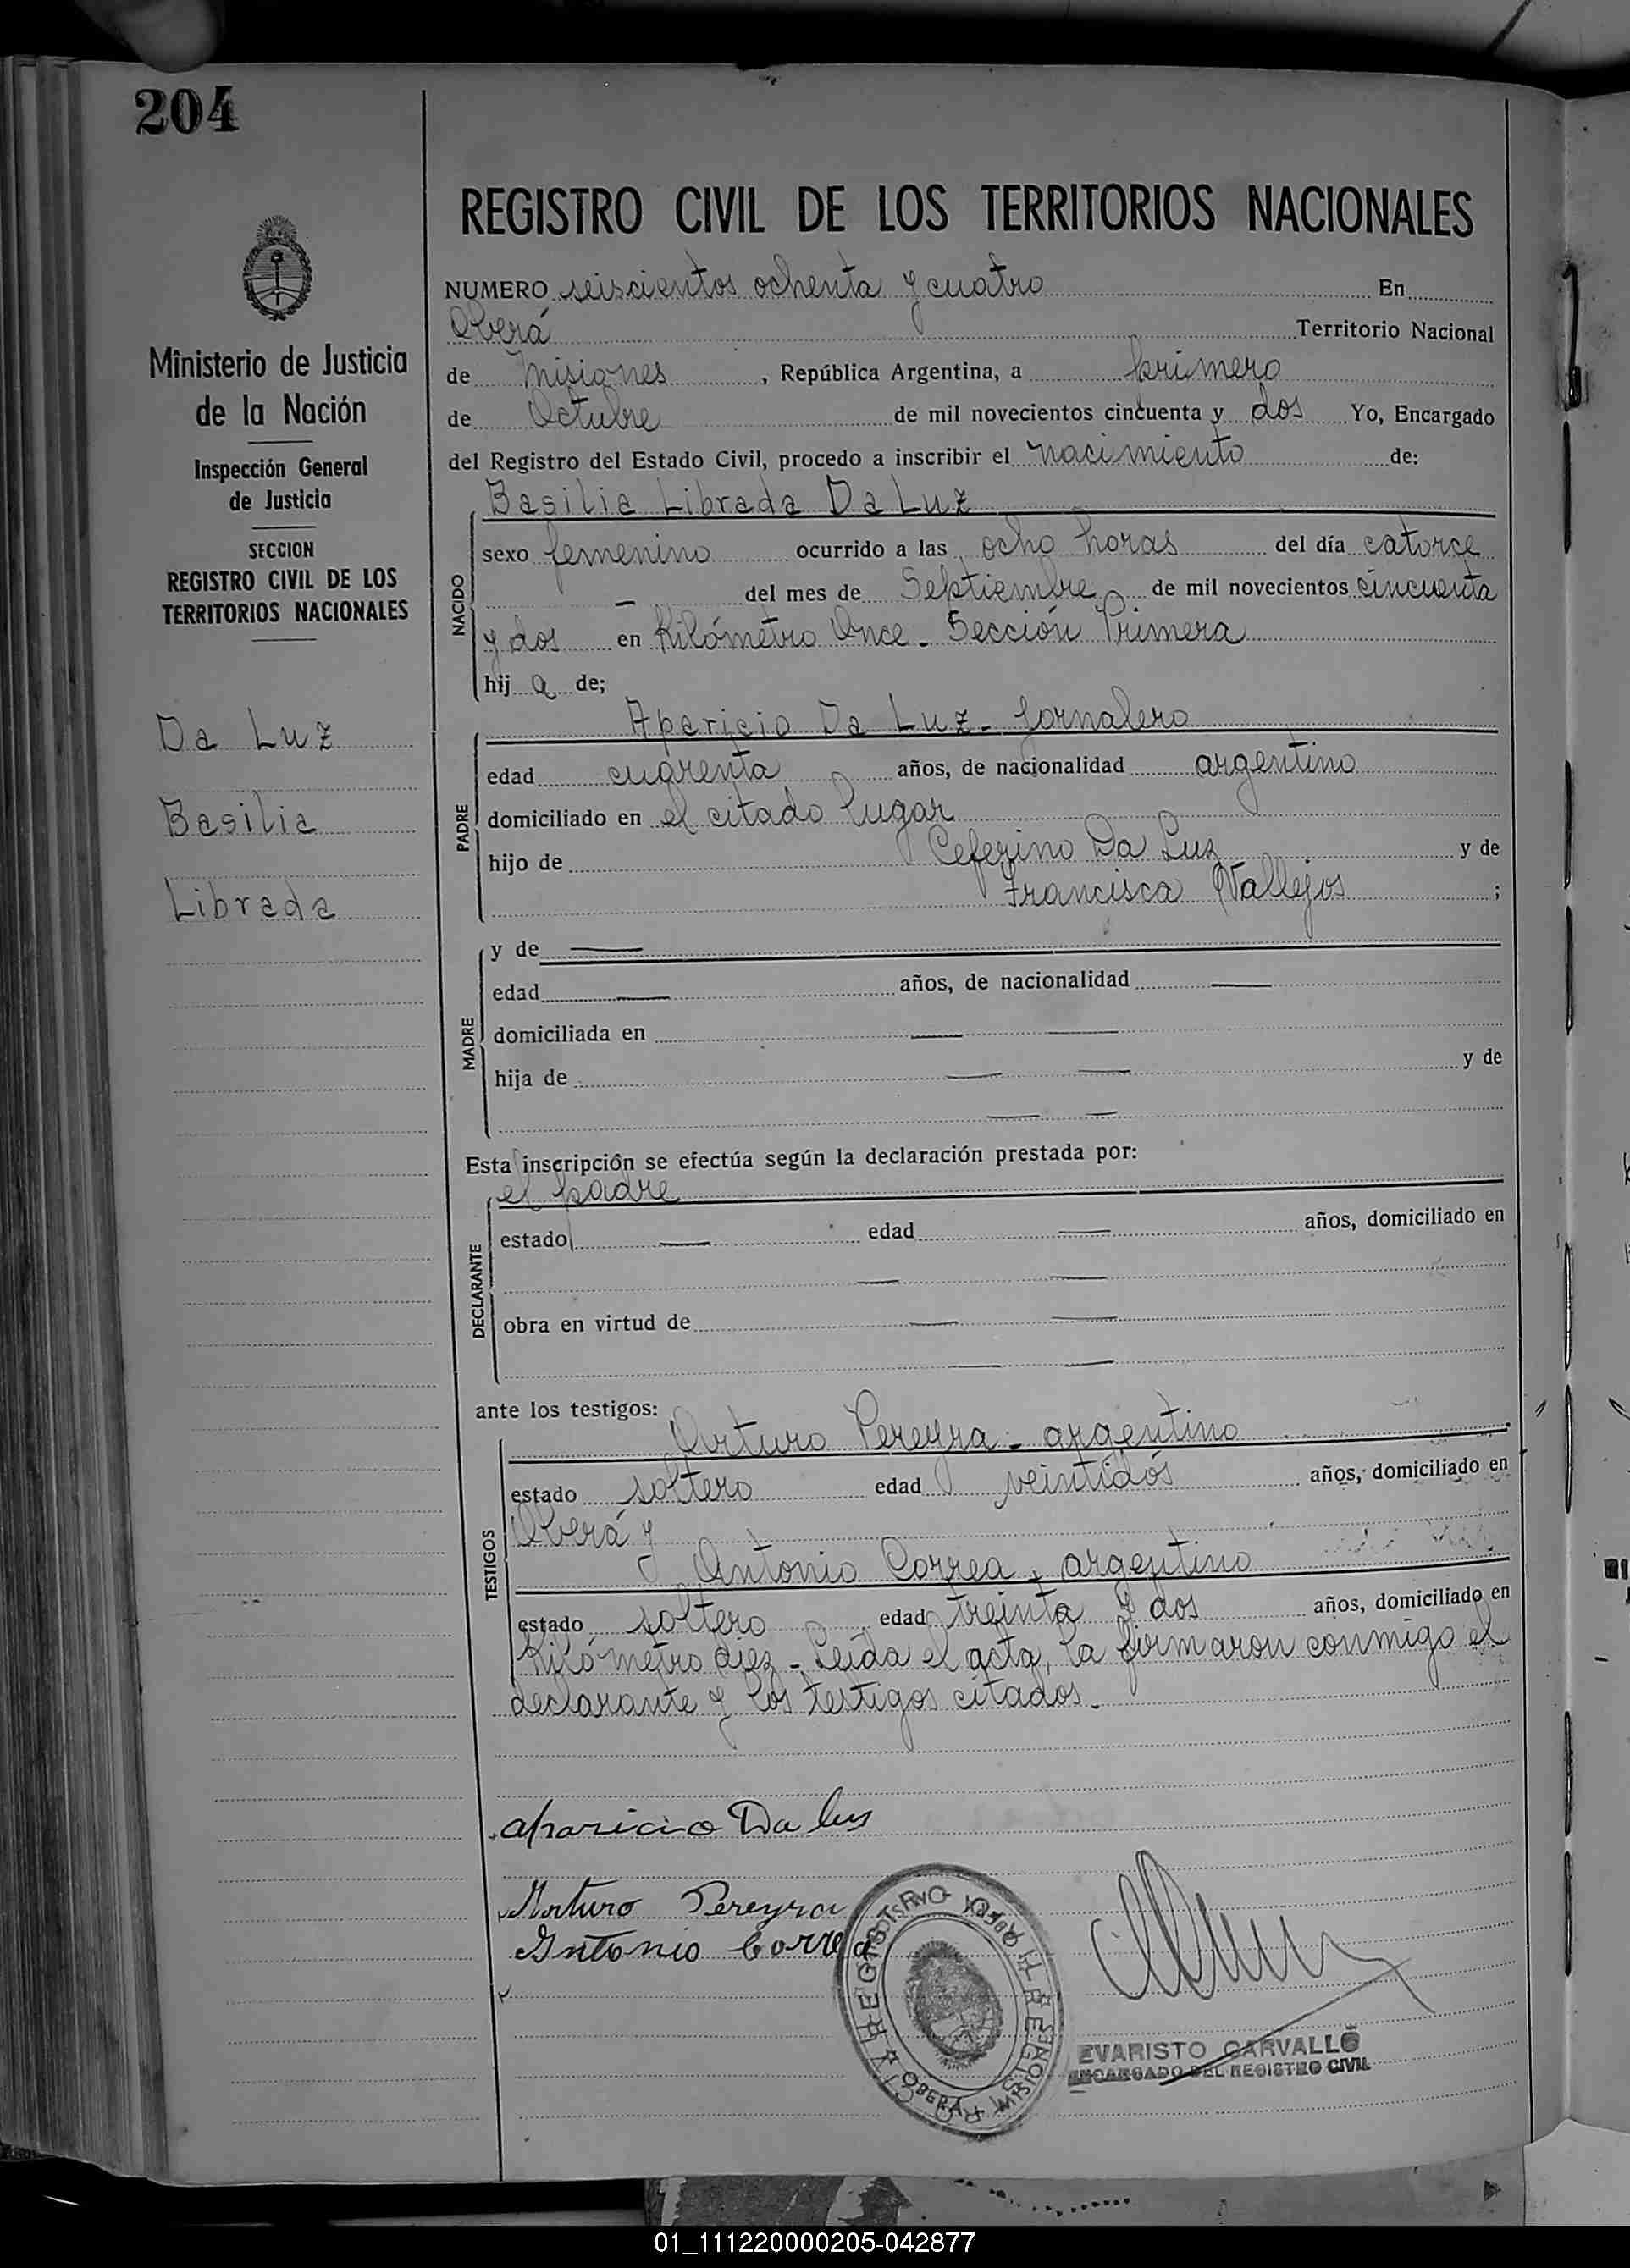 204
Ministerio de Justicia
de la Nación
Inspección General
de Justicia
SECCION
REGISTRO CIVIL DE LOS
TERRITORIOS NACIONALES
Da Luz
Basilia
Librada
REGISTRO CIVIL DE LOS TERRITORIOS NACIONALES
NUMERO seiscientos ochenta y cuatro En
Oberá Territorio Nacional
de Misiones, República Argentina, a primero
de Octubre de mil novecientos cincuenta y dos Yo, Encargado
del Registro del Estado Civil, procedo a inscribir el nacimiento de:
Basilia Librada Da Luz
NACIDO
sexo femenino ocurrido a las ocho horas del día catorce
— del mes de Septiembre de mil novecientos cincuenta
y dos en Kilómetro Once - Sección Primera
hij a de;
Aparicio Da Luz - Jornalero
PADRE
edad cuarenta años, de nacionalidad argentino
domiciliado en el citado lugar
hijo de Ceferino Da Luz y de
Francisca Vallejos ;
MADRE
y de —
edad — años, de nacionalidad —
domiciliada en — —
hija de — — y de
— —
Esta inscripción se efectúa según la declaración prestada por:
el padre
DECLARANTE
estado — edad — años, domiciliado en
— —
obra en virtud de — —
— —
ante los testigos:
Arturo Pereyra - argentino
TESTIGOS
estado soltero edad veintidós años, domiciliado en
Oberá y
Antonio Correa, argentino
estado soltero edad treinta y dos años, domiciliado en
Kilómetro diez - Leída el acta, la firmaron conmigo el
declarante y los testigos citados.-
aparicio Da lus
Arturo Pereyra
Antonio Correa
EVARISTO CARVALLO
ENCARGADO DEL REGISTRO CIVIL
01_111220000205-042877